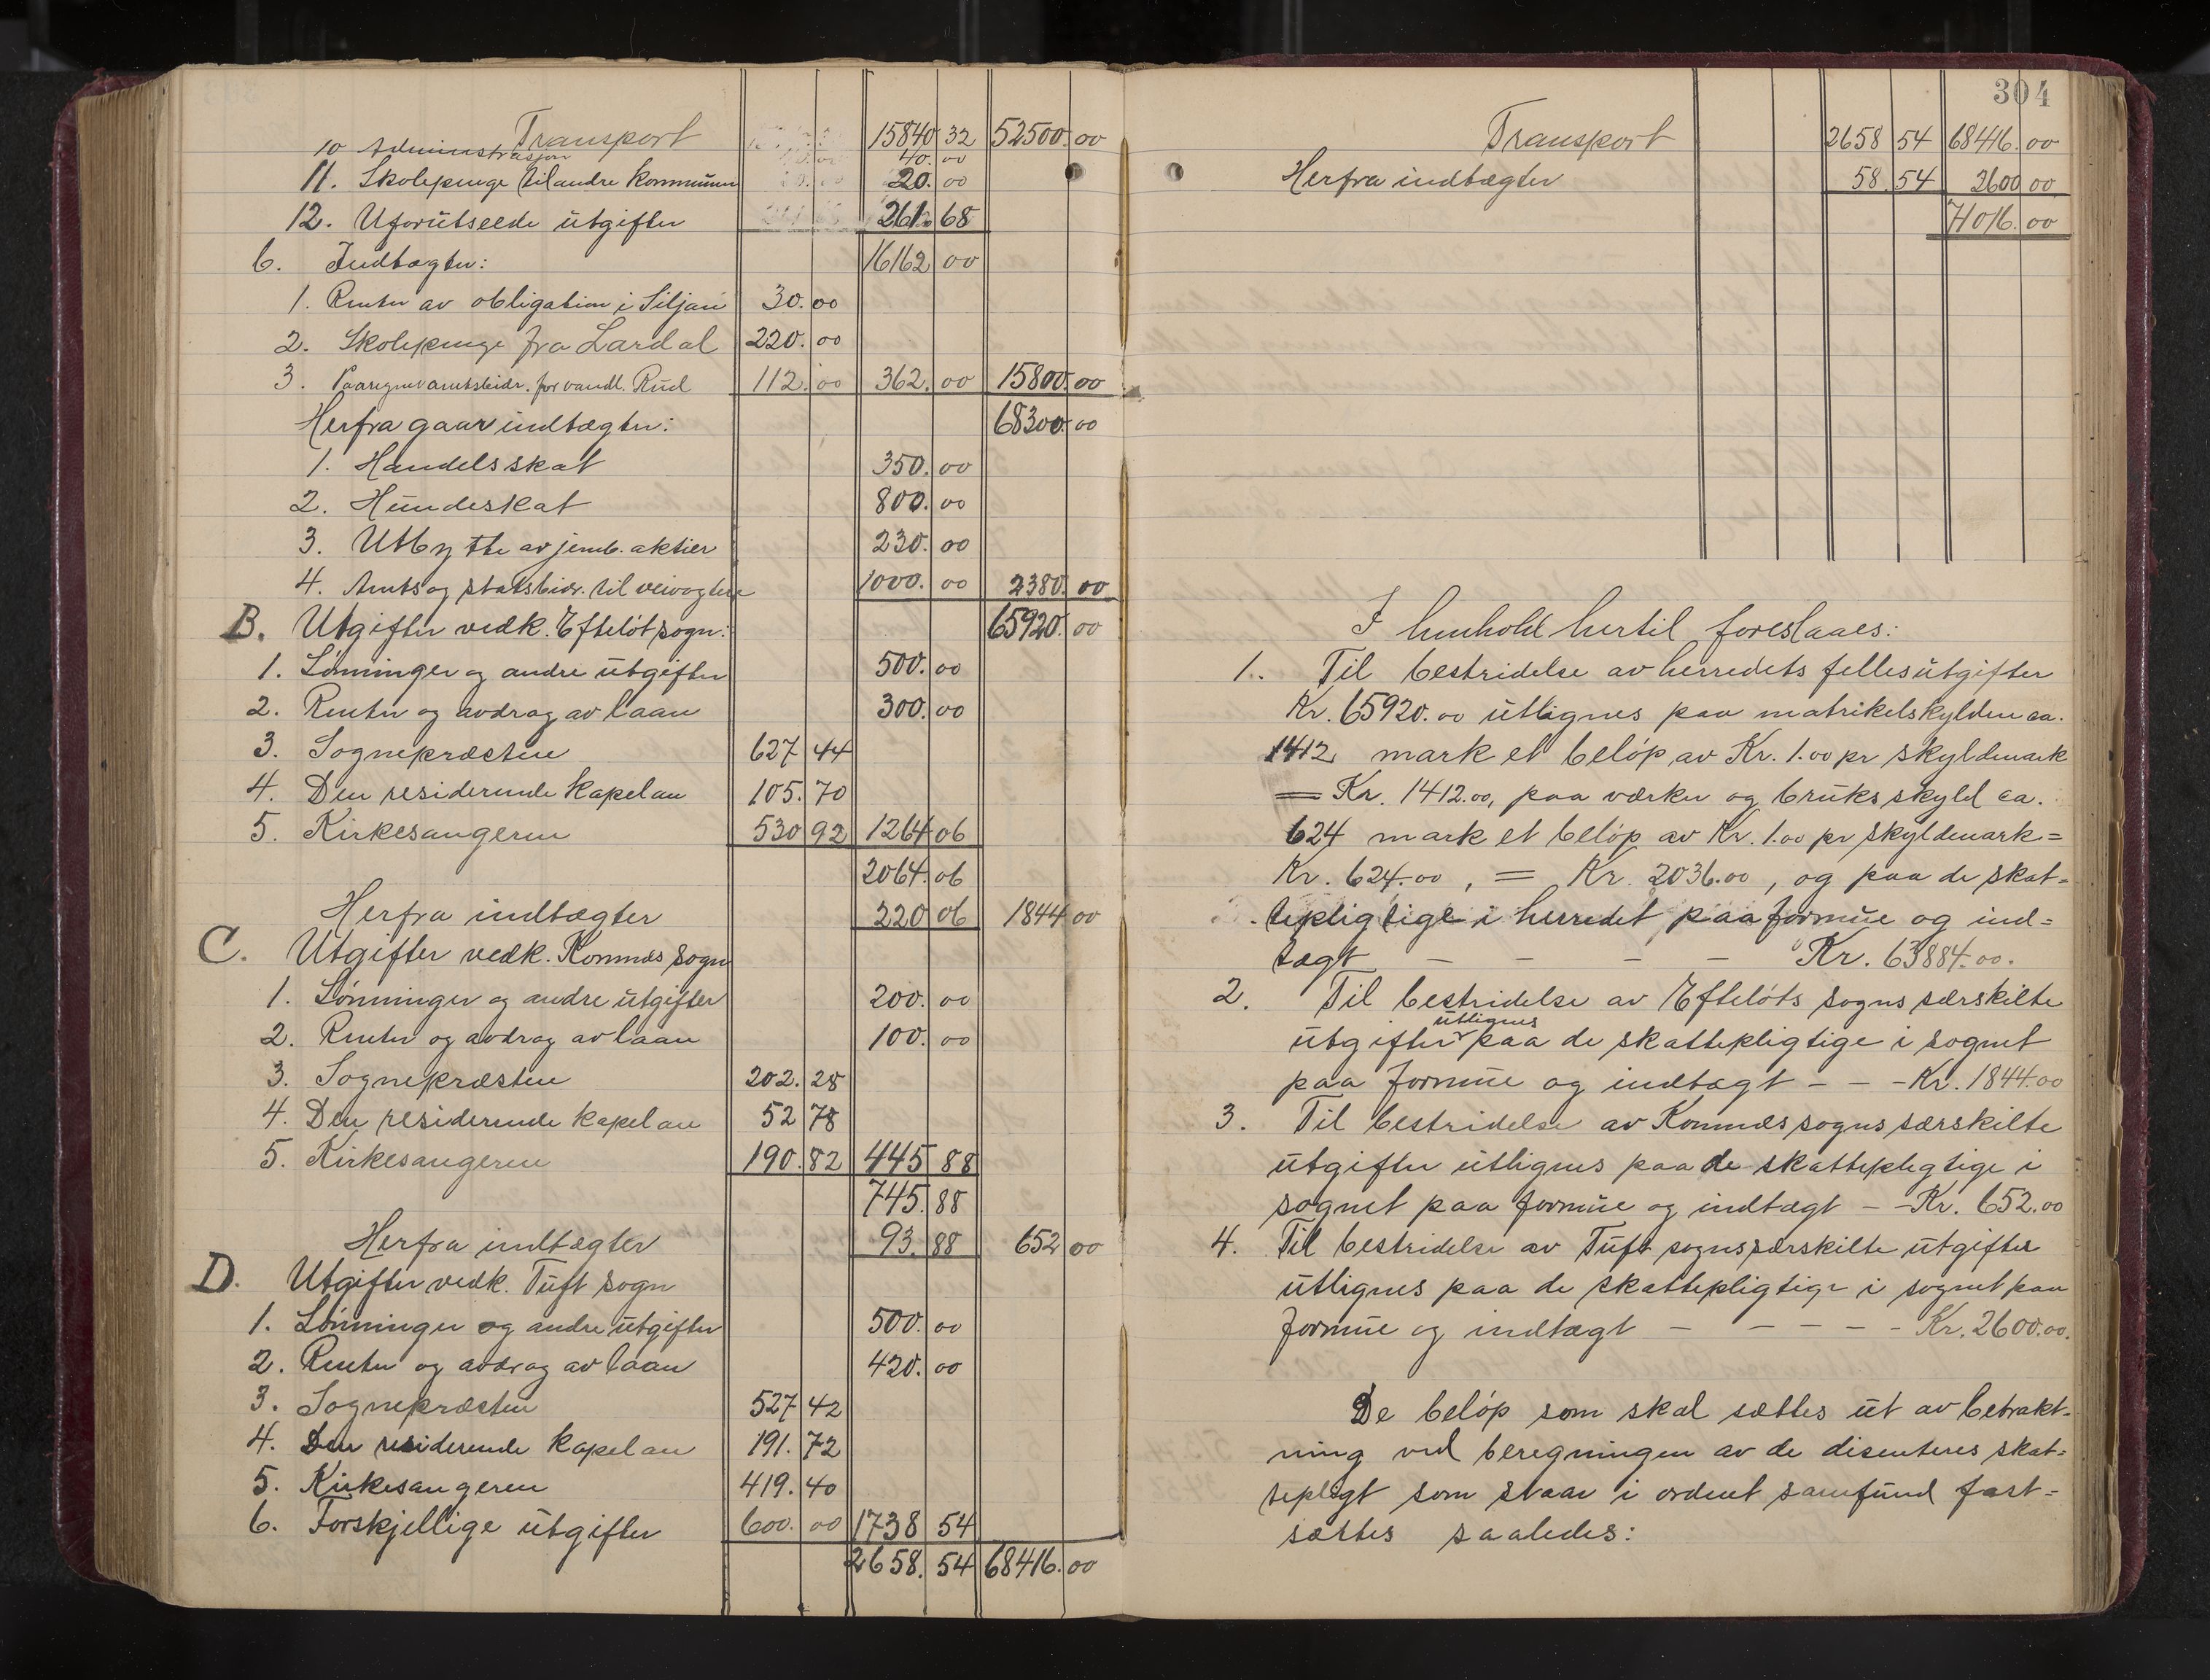 Transport 15840 32 52500. 00
10 Administrasjon 40. 00
11. Skolepenge til andre kommuner 20. 00
12. Uforutseede utgifter 261 68
6. Indtægter: 16162 00
1. Renter av obligation i Siljan 30. 00
2. Skolepenge fra Lardal 220. 00
3. Paaregnet amtsbidr. for vandl. Rud 112. 00 362. 00 15800. 00
Herfra gaar indtægter: 68300. 00
1. Handelsskat 350. 00
2. Hundeskat 800. 00
3. Utbytte av jernb. aktier 230. 00
4. Amts og statsbidr. til veivogtere 1000. 00 2380. 00
B. Utgifter vedk. Efteløt sogn: 65920. 00
1. Lønninger og andre utgifter 500. 00
2. Renter og avdrag av laan 300. 00
3. Sognepræsten 627 44
4. Den residerende kapelan 105. 70
5. Kirkesangeren 530 92 1264 06
2064. 06
Herfra indtægter 220 06 1844 00
C. Utgifter vedk. Komnes sogn
1. Lønninger og andre utgifter 200. 00
2. Renter og avdrag av laan 100. 00
3. Sognepræsten 202. 28
4. Den residerende kapelan 52 78
5. Kirkesangeren 190. 82 445 88
745. 88
Herfra indtægter 93. 88 652 00
D. Utgifter vedk. Tuft sogn
1. Lønninger og andre utgifter 500. 00
2. Renter og avdrag av laan 420. 00
3. Sognepræsten 527 42
4. Den residerende kapelan 191. 72
5. Kirkesangeren 419. 40
6. Forskjellige utgifter 600. 00 1738 54
2658. 54 68416. 00
304
Transport 2658 54 68416. 00
Herfra indtægter 58. 54 2600 00
71016. 00
I henhold hertil foreslaaes:
1. Til bestridelse av herredets fellesutgifter
Kr. 65920.00 utlignes paa matrikelskylden ca.
1412 mark et beløp av Kr. 1.00 pr skyldmark
= Kr. 1412.00, paa værker og bruksskyld ca.
624 mark et beløp av Kr. 1.00 pr skyldmark =
Kr. 624.00, = Kr. 2036.00, og paa de skat-
tepligtige i herredet paa formue og ind-
tægt – – – – Kr. 63884.00.
2. Til bestridelse av Efteløts sogns særskilte
utlignes
utgifter paa de skattepligtige i sognet
paa formue og indtægt – – – Kr. 1844.00
3. Til bestridelse av Komnes sogns særskilte
utgifter utlignes paa de skattepligtige i
sognet paa formue og indtægt – – Kr. 652.00
4. Til bestridelse av Tuft sogns særskilte utgifter
utlignes paa de skattepligtige i sognet paa
formue og indtægt – – – – – Kr. 2600.00.
De beløp som skal sættes ut av betrakt-
ning ved beregningen av de disenteres skat-
tepligt som staar i ordnet samfund fast-
sættes saaledes: